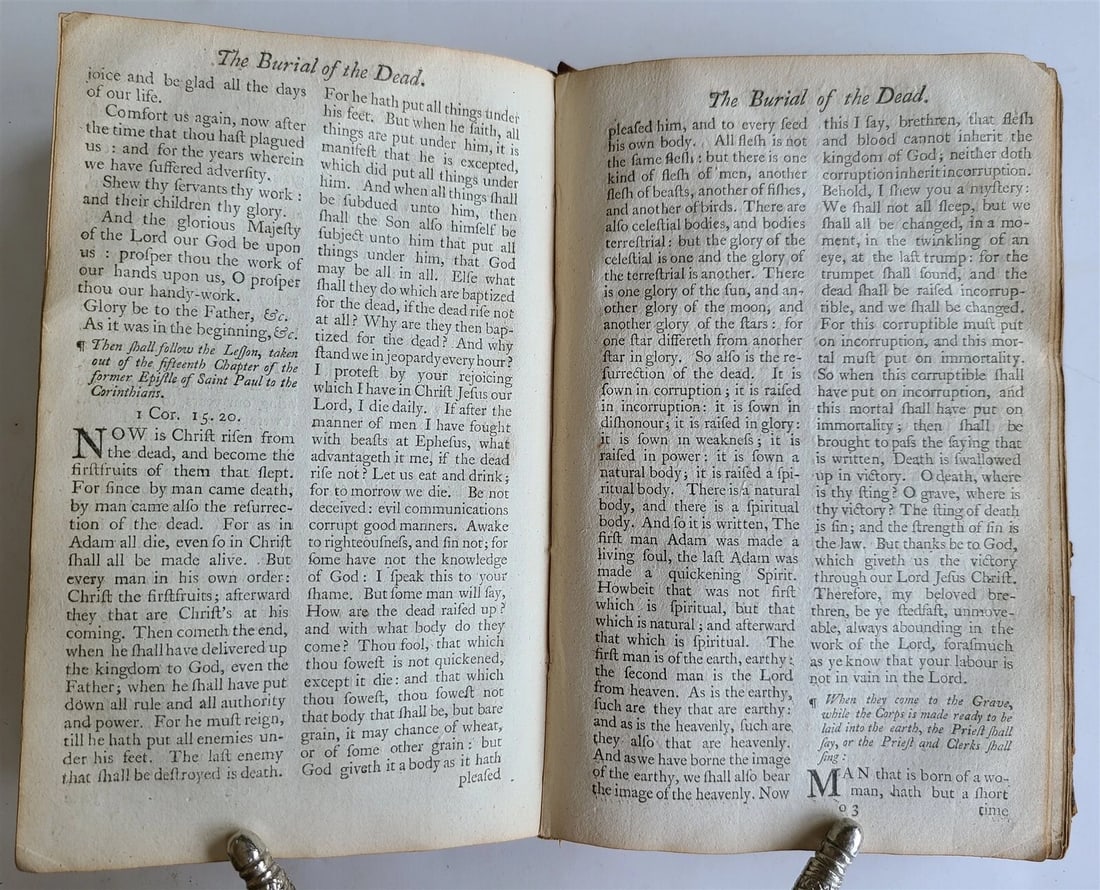 The Burial of the Dead.
joice and be glad all the days
of our life.
Comfort us again, now after
the time that thou haſt plagued
us : and for the years wherein
we have ſuffered adverſity.
Shew thy ſervants thy work :
and their children thy glory.
And the glorious Majeſty
of the Lord our God be upon
us : proſper thou the work of
our hands upon us, O proſper
thou our handy-work.
Glory be to the Father, &c.
As it was in the beginning, &c.
¶ Then ſhall follow the Leſſon, taken
out of the fifteenth Chapter of the
former Epiſtle of Saint Paul to the
Corinthians.
1 Cor. 15. 20.
NOW is Chriſt riſen from
the dead, and become the
firſtfruits of them that ſlept.
For ſince by man came death,
by man came alſo the reſurrec-
tion of the dead. For as in
Adam all die, even ſo in Chriſt
ſhall all be made alive. But
every man in his own order:
Chriſt the firſtfruits; afterward
they that are Chriſt's at his
coming. Then cometh the end,
when he ſhall have delivered up
the kingdom to God, even the
Father; when he ſhall have put
down all rule and all authority
and power. For he muſt reign,
till he hath put all enemies un-
der his feet. The laſt enemy
that ſhall be deſtroyed is death.
For he hath put all things under
his feet. But when he ſaith, all
things are put under him, it is
manifeſt that he is excepted,
which did put all things under
him. And when all things ſhall
be ſubdued unto him, then
ſhall the Son alſo himſelf be
ſubject unto him that put all
things under him, that God
may be all in all. Elſe what
ſhall they do which are baptized
for the dead, if the dead riſe not
at all? Why are they then bap-
tized for the dead? And why
ſtand we in jeopardy every hour?
I proteſt by your rejoicing
which I have in Chriſt Jeſus our
Lord, I die daily. If after the
manner of men I have fought
with beaſts at Epheſus, what
advantageth it me, if the dead
riſe not? Let us eat and drink;
for to morrow we die. Be not
deceived: evil communications
corrupt good manners. Awake
to righteouſneſs, and ſin not; for
ſome have not the knowledge
of God: I ſpeak this to your
ſhame. But ſome man will ſay,
How are the dead raiſed up?
and with what body do they
come? Thou fool, that which
thou ſoweſt is not quickened,
except it die: and that which
thou ſoweſt, thou ſoweſt not
that body that ſhall be, but bare
grain, it may chance of wheat,
or of ſome other grain: but
God giveth it a body as it hath
pleaſed
The Burial of the Dead.
pleaſed him, and to every ſeed
his own body. All fleſh is not
the ſame fleſh: but there is one
kind of fleſh of men, another
fleſh of beaſts, another of fiſhes,
and another of birds. There are
alſo celeſtial bodies, and bodies
terreſtrial: but the glory of the
celeſtial is one and the glory of
the terreſtrial is another. There
is one glory of the ſun, and an-
other glory of the moon, and
another glory of the ſtars: for
one ſtar differeth from another
ſtar in glory. So alſo is the re-
ſurrection of the dead. It is
ſown in corruption; it is raiſed
in incorruption: it is ſown in
diſhonour; it is raiſed in glory:
it is ſown in weakneſs; it is
raiſed in power: it is ſown a
natural body; it is raiſed a ſpi-
ritual body. There is a natural
body, and there is a ſpiritual
body. And ſo it is written, The
firſt man Adam was made a
living ſoul, the laſt Adam was
made a quickening Spirit.
Howbeit that was not firſt
which is ſpiritual, but that
which is natural; and afterward
that which is ſpiritual. The
firſt man is of the earth, earthy:
the ſecond man is the Lord
from heaven. As is the earthy,
ſuch are they that are earthy:
and as is the heavenly, ſuch are
they alſo that are heavenly.
And as we have borne the image
of the earthy, we ſhall alſo bear
the image of the heavenly. Now
this I ſay, brethren, that fleſh
and blood cannot inherit the
kingdom of God; neither doth
corruption inherit incorruption.
Behold, I ſhew you a myſtery:
We ſhall not all ſleep, but we
ſhall all be changed, in a mo-
ment, in the twinkling of an
eye, at the laſt trump: for the
trumpet ſhall ſound, and the
dead ſhall be raiſed incorrup-
tible, and we ſhall be changed.
For this corruptible muſt put
on incorruption, and this mor-
tal muſt put on immortality.
So when this corruptible ſhall
have put on incorruption, and
this mortal ſhall have put on
immortality; then ſhall be
brought to paſs the ſaying that
is written, Death is ſwallowed
up in victory. O death, where
is thy ſting? O grave, where is
thy victory? The ſting of death
is ſin; and the ſtrength of ſin is
the law. But thanks be to God,
which giveth us the victory
through our Lord Jeſus Chriſt.
Therefore, my beloved bre-
thren, be ye ſtedfaſt, unmove-
able, always abounding in the
work of the Lord, foraſmuch
as ye know that your labour is
not in vain in the Lord.
¶ When they come to the Grave,
while the Corps is made ready to be
laid into the earth, the Prieſt ſhall
ſay, or the Prieſt and Clerks ſhall
ſing:
MAN that is born of a wo-
man, hath but a ſhort
3
time